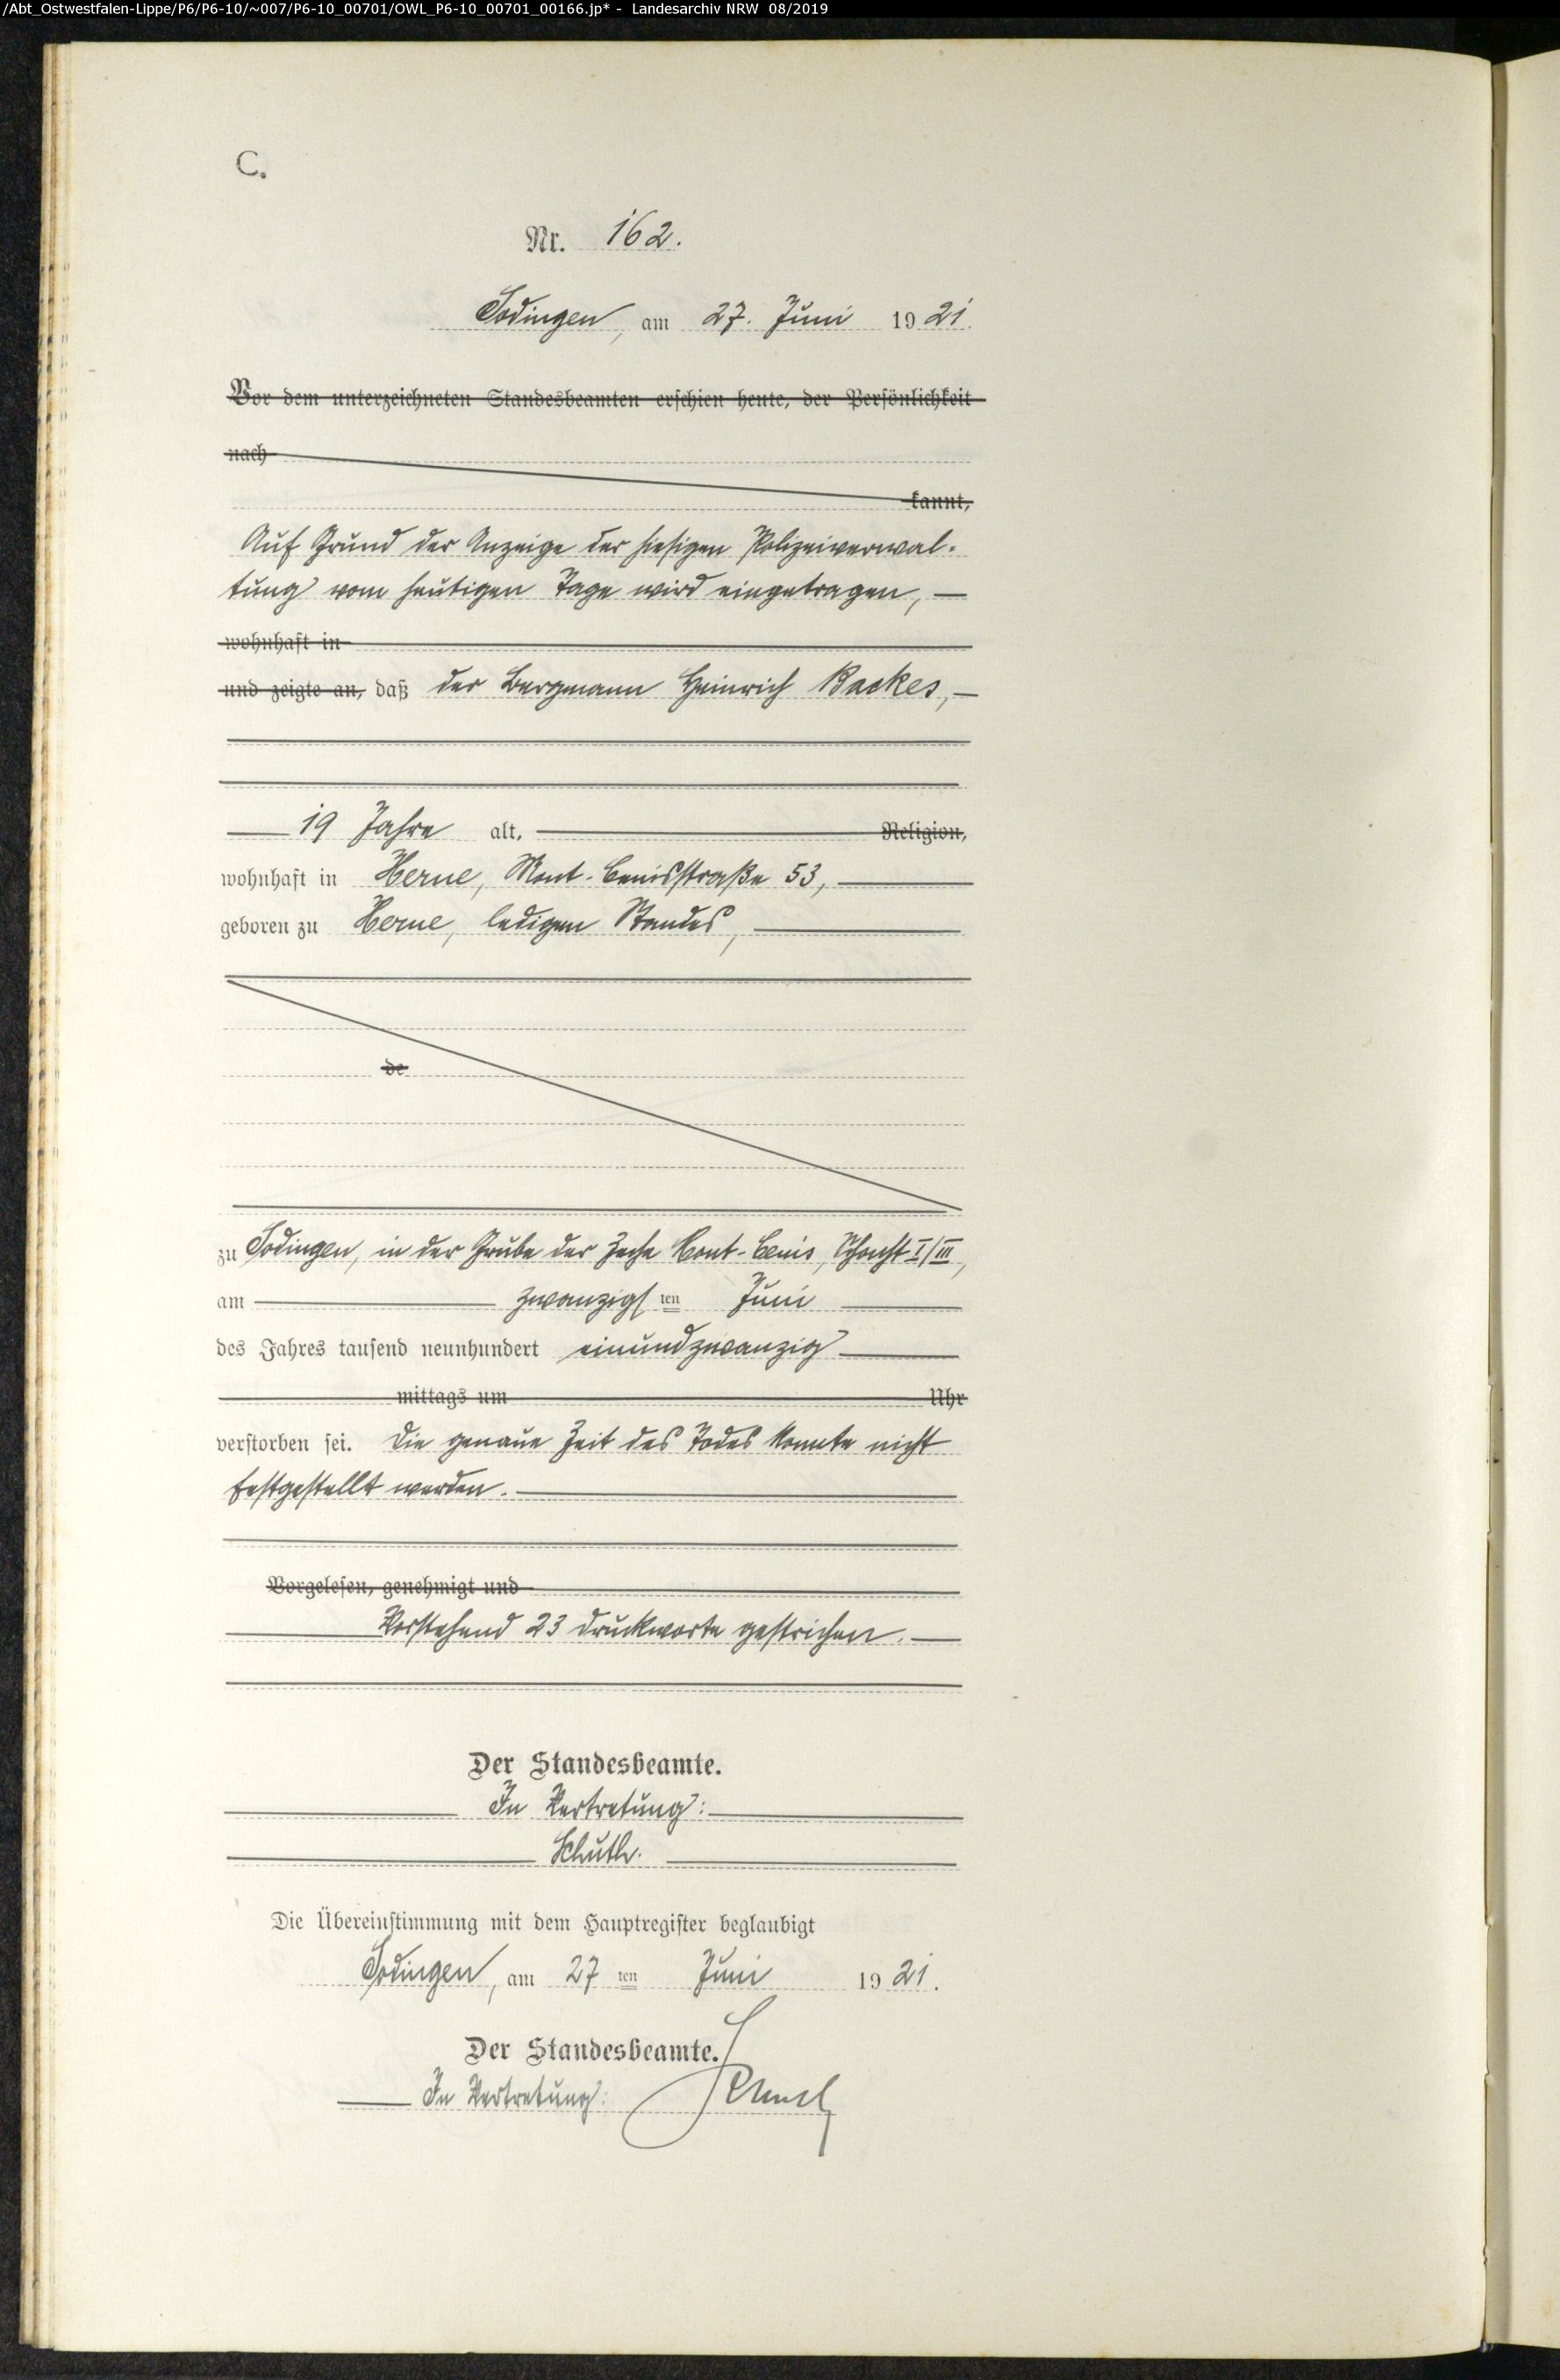 /Abt_Ostwestfalen-Lippe/P6/P6-10/~007/P6-10_00701/OWL_P6-10_00701_00166.jp* - Landesarchiv NRW 08/2019
C.
Nr. 162.
Sodingen, am 27. Juni 1921.
Vor dem unterzeichneten Standesbeamten erschien heute, der Persönlichkeit
nach
kannt,
Auf Grund der Anzeige der hiesigen Polizeiverwal-
tung vom heutigen Tage wird eingetragen, —
wohnhaft in
und zeigte an, daß der Bergmann Heinrich Backes, —
19 Jahre alt, Religion,
wohnhaft in Herne, Mont-Cenisstraße 53,
geboren zu Herne, ledigen Standes,
de
zu Sodingen, in der Grube der Zeche Mont-Cenis, Schacht I/III,
am zwanzigsten Juni
des Jahres tausend neunhundert einundzwanzig
mittags um Uhr
verstorben sei. Die genaue Zeit des Todes konnte nicht
festgestellt werden.
Vorgelesen, genehmigt und
Vorstehend 23 Druckworte gestrichen. —
Der Standesbeamte.
In Vertretung:
Schuth.
Die Übereinstimmung mit dem Hauptregister beglaubigt
Sodingen, am 27 ten Juni 1921.
Der Standesbeamte.
In Vertretung: